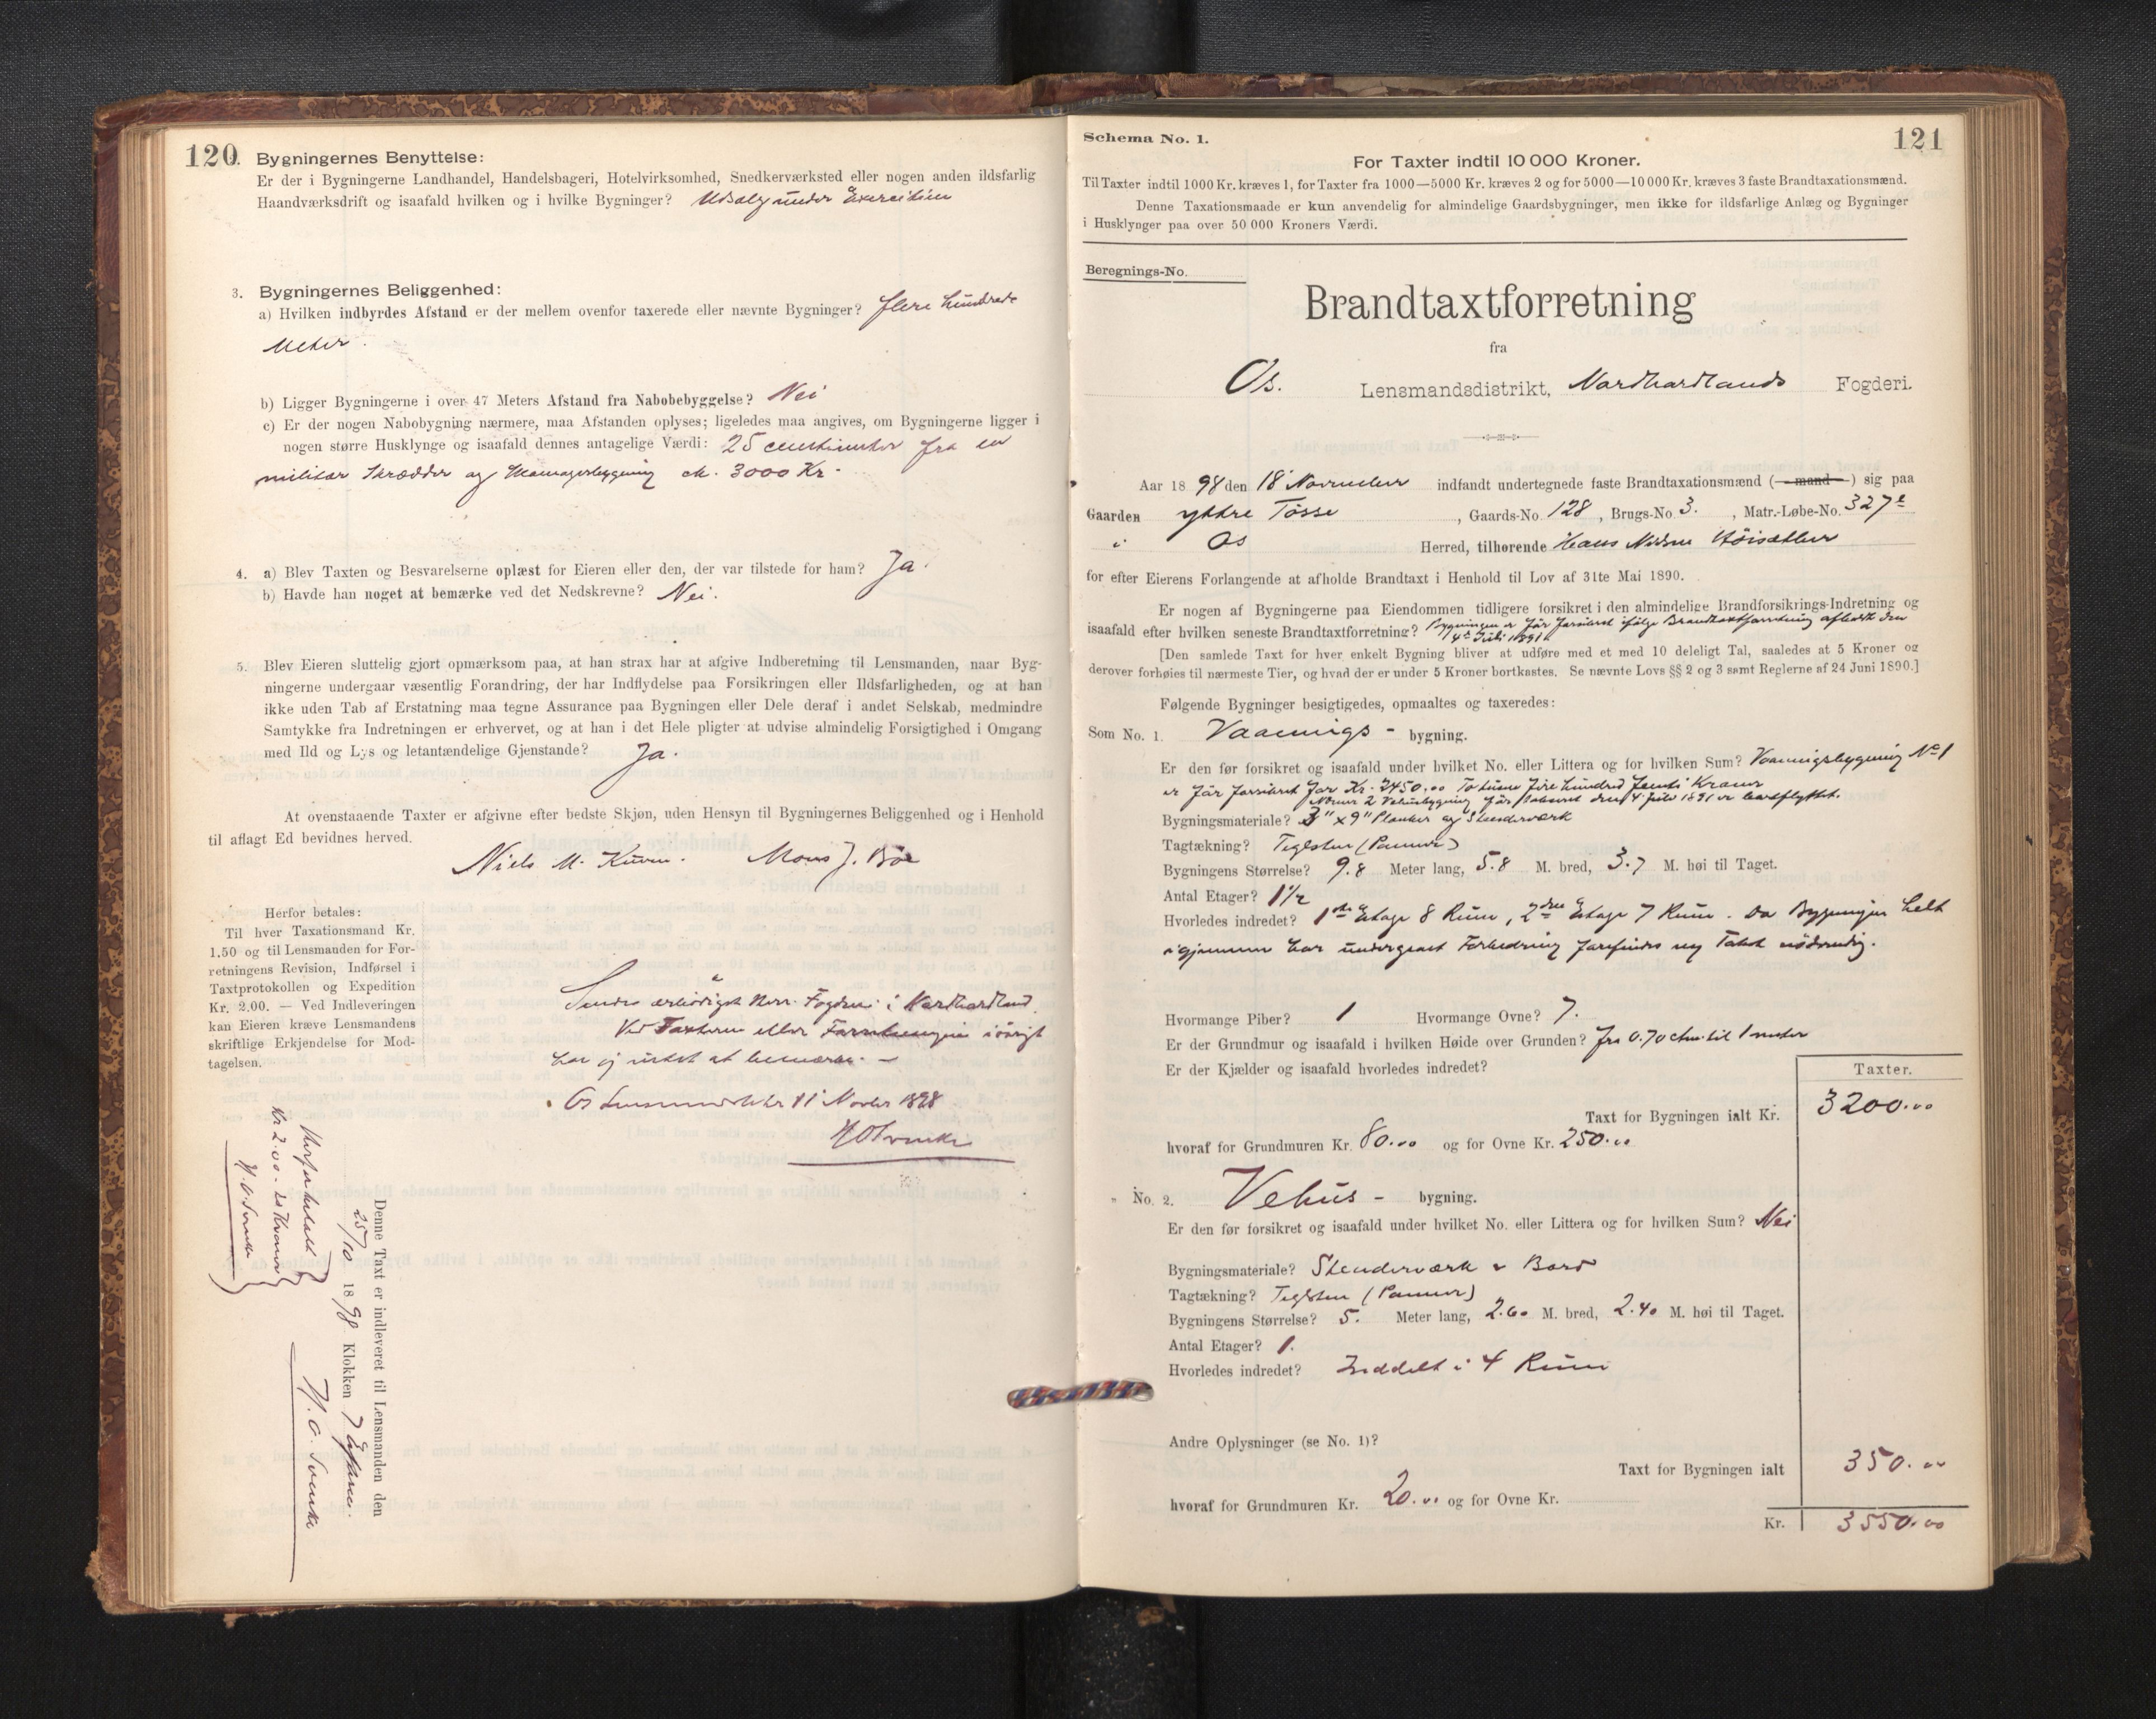 120.
Bygningernes Benyttelse:
Er der i Bygningerne Landhandel, Handelsbageri, Hotelvirksomhed, Snedkerværksted eller nogen anden ildsfarlig
Haandværksdrift og isaafald hvilken og i hvilke Bygninger? Udsalg under Exercitien
3. Bygningernes Beliggenhed:
a) Hvilken indbyrdes Afstand er der mellem ovenfor taxerede eller nævnte Bygninger? flere hundrede
Meter.
b) Ligger Bygningerne i over 47 Meters Afstand fra Nabobebyggelse? Nei
c) Er der nogen Nabobygning nærmere, maa Afstanden oplyses; ligeledes maa angives, om Bygningerne ligger i
nogen større Husklynge og isaafald dennes antagelige Værdi: 25 centimeter fra en
militær Skrædder og bygning 3000 Kr.
4. a) Blev Taxten og Besvarelserne oplæst for Eieren eller den, der var tilstede for ham? Ja.
b) Havde han noget at bemærke ved det Nedskrevne? Nei.
5. Blev Eieren sluttelig gjort opmærksom paa, at han strax har at afgive Indberetning til Lensmanden, naar Byg-
ningerne undergaar væsentlig Forandring, der har Indflydelse paa Forsikringen eller Ildsfarligheden, og at han
ikke uden Tab af Erstatning maa tegne Assurance paa Bygningen eller Dele deraf i andet Selskab, medmindre
Samtykke fra Indretningen er erhvervet, og at han i det Hele pligter at udvise almindelig Forsigtighed i Omgang
med Ild og Lys og letantændelige Gjenstande? Ja.
At ovenstaaende Taxter er afgivne efter bedste Skjøn, uden Hensyn til Bygningernes Beliggenhed og i Henhold
til aflagt Ed bevidnes herved.
Niels M. Kuven. Mons J. Bøe
Herfor betales:
Til hver Taxationsmand Kr.
1.50 og til Lensmanden for For-
retningens Revision, Indførsel i
Taxtprotokollen og Expedition
Kr. 2.00. — Ved Indleveringen
kan Eieren kræve Lensmandens
skriftlige Erkjendelse for Mod-
tagelsen.
Sendes ærbødigst Herr Fogden i Nordhordland.
Ved Taxterne eller Forretningen iøvrigt
har ej intet at bemærke. —
Os 11 Novber 1898
Herfor betalt
Kr 2.00 - to Kroner
Denne Taxt er indleveret til Lensmanden den
25/10 1898 Klokken 7
Schema No. 1.
121
For Taxter indtil 10 000 Kroner.
Til Taxter indtil 1000 Kr. kræves 1, for Taxter fra 1000—5000 Kr. kræves 2 og for 5000—10 000 Kr. kræves 3 faste Brandtaxationsmænd.
Denne Taxationsmaade er kun anvendelig for almindelige Gaardsbygninger, men ikke for ildsfarlige Anlæg og Bygninger
i Husklynger paa over 50 000 Kroners Værdi.
Beregnings-No.
Brandtaxtforretning
fra
Os. Lensmandsdistrikt, Nordhordlands Fogderi.
Aar 1898 den 18 November indfandt undertegnede faste Brandtaxationsmænd (—mand—) sig paa
Gaarden yttre Tøsse, Gaards-No. 128, Brugs-No. 3., Matr.-Løbe-No. 327
i Os Herred, tilhørende Hans
for efter Eierens Forlangende at afholde Brandtaxt i Henhold til Lov af 31te Mai 1890.
Er nogen af Bygningerne paa Eiendommen tidligere forsikret i den almindelige Brandforsikrings-Indretning og
isaafald efter hvilken seneste Brandtaxtforretning? Bygningen er før forsikret ifølge Brandtaxtforretning afholdt den
4de Juli 1891.
[Den samlede Taxt for hver enkelt Bygning bliver at udføre med et med 10 deleligt Tal, saaledes at 5 Kroner og
derover forhøies til nærmeste Tier, og hvad der er under 5 Kroner bortkastes. Se nævnte Lovs §§ 2 og 3 samt Reglerne af 24 Juni 1890.]
Følgende Bygninger besigtigedes, opmaaltes og taxeredes:
Som No. 1. Vaanings- bygning.
Er den før forsikret og isaafald under hvilket No. eller Littera og for hvilken Sum? Vaaningsbygning No 1
er før forsikret for Kr. 2450.00 To tusen fire hundred femti Kroner
Numer 2 Vehusbygning før den 4 Juli 1891 er bortflyttet.
Bygningsmateriale? 3" x 9" Planker og Stenderværk
Tagtækning? Teglsten (Panner)
Bygningens Størrelse? 9.8 Meter lang, 5.8 M. bred, 3.7 M. høi til Taget.
Antal Etager? 1 1/2
Hvorledes indredet? 1ste Etage 8 Rum, 2den Etage 7 Rum. Da Bygningen helt
igjennem har undergaaet Forbedring forefindes ny Takst nødvendig.
Hvormange Piber? 1 Hvormange Ovne? 7.
Er der Grundmur og isaafald i hvilken Høide over Grunden? fra 0.70 ctm. til 1 meter
Er der Kjælder og isaafald hvorledes indredet?
Taxter.
Taxt for Bygningen ialt Kr. 3200.00
hvoraf for Grundmuren Kr. 80.00 og for Ovne Kr. 250.00
" No. 2. Vehus- bygning.
Er den før forsikret og isaafald under hvilket No. eller Littera og for hvilken Sum? Nei
Bygningsmateriale? Stenderværk & Bord
Tagtækning? Teglsten (Panner)
Bygningens Størrelse? 5. Meter lang, 2.60 M. bred, 2.40 M. høi til Taget.
Antal Etager? 1.
Hvorledes indredet? Inddelt i 4 Rum
Andre Oplysninger (se No. 1)?
Taxt for Bygningen ialt 350.00
hvoraf for Grundmuren Kr. 20.00 og for Ovne Kr.
Kr. 3550.00